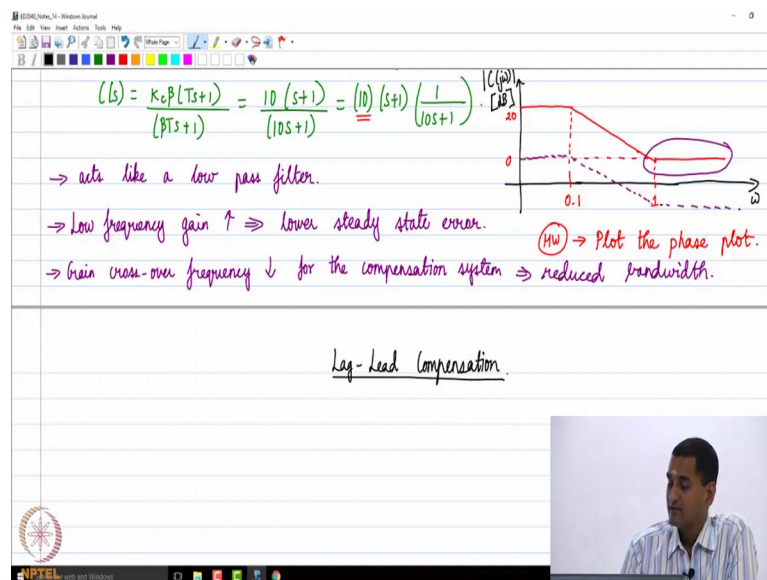 ED2040_Notes_14 - Windows Journal
File Edit View Insert Actions Tools Help
Whole Page
B I
C(s) = Kcβ(Ts+1) / (βTs+1) = 10(s+1) / (10s+1) = (10)(s+1)(1 / (10s+1)).
|C(jω)|
[dB]
20
0
0.1
1
ω
→ acts like a low pass filter.
→ Low frequency gain ↑ ⇒ lower steady state error.
HW → Plot the phase plot.
→ Gain cross-over frequency ↓ for the compensation system ⇒ reduced bandwidth.
Lag-Lead Compensation.
NPTEL
web and Windows